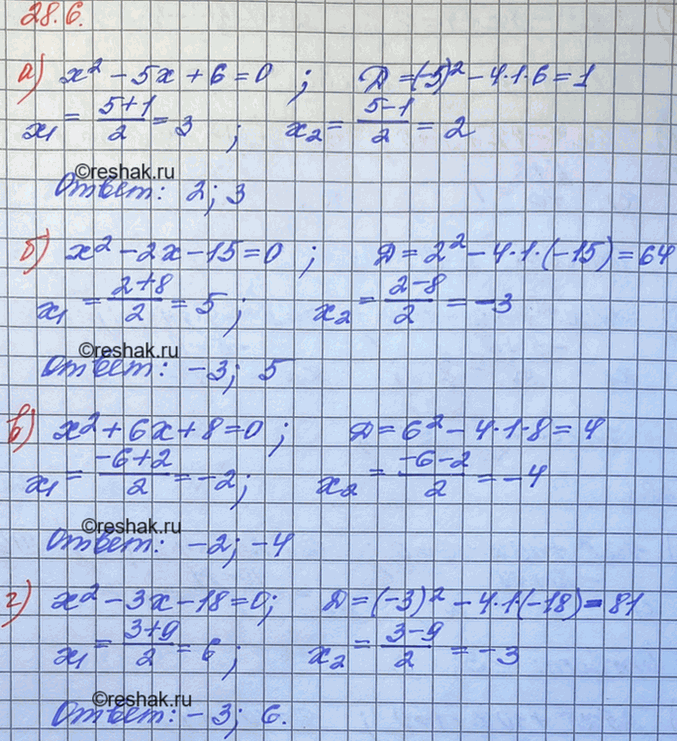 28.6.
а) x² - 5x + 6 = 0 ; D = (-5)² - 4·1·6 = 1
x₁ = (5+1)/2 = 3 ; x₂ = (5-1)/2 = 2
©reshak.ru
Ответ: 2; 3
б) x² - 2x - 15 = 0 ; D = 2² - 4·1·(-15) = 64
x₁ = (2+8)/2 = 5 ; x₂ = (2-8)/2 = -3
©reshak.ru
Ответ: -3; 5
в) x² + 6x + 8 = 0 ; D = 6² - 4·1·8 = 4
x₁ = (-6+2)/2 = -2 ; x₂ = (-6-2)/2 = -4
©reshak.ru
Ответ: -2; -4
г) x² - 3x - 18 = 0; D = (-3)² - 4·1·(-18) = 81
x₁ = (3+9)/2 = 6 ; x₂ = (3-9)/2 = -3
©reshak.ru
Ответ: -3; 6.